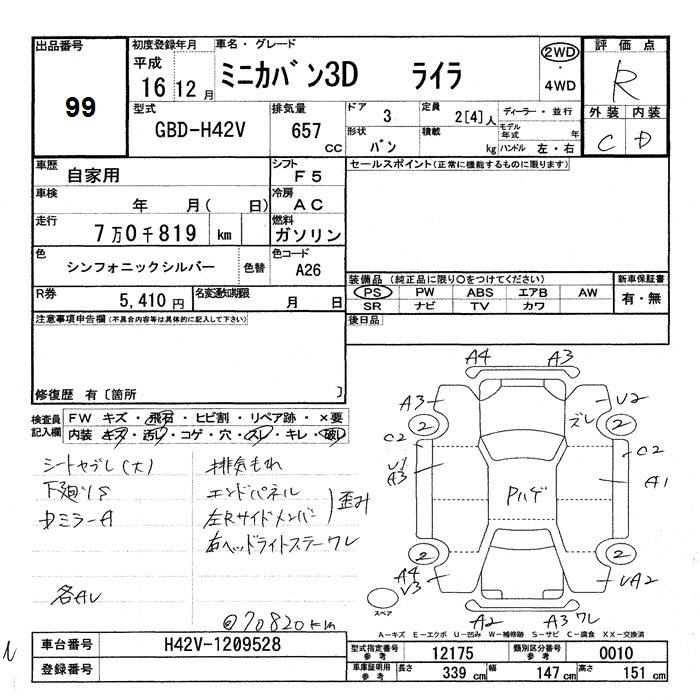 出品番号
99
初度登録年月
平成
16 12月
車名・グレード
ミニカバン3D ライラ
2WD
・
4WD
評価点
R
外装 内装
C D
型式
GBD-H42V
排気量
657 cc
ドア 3
形状 バン
定員 2[4]人
積載 kg
ディーラー・並行
モデル年式 年
ハンドル 左・右
車歴 自家用
シフト F5
車検 年 月( 日)
冷房 AC
走行 7万0千819 km
燃料 ガソリン
色 シンフォニックシルバー 色替
色コード A26
R券 5,410円
名変通知期限 月 日
セールスポイント(正常に機能するものに限ります)
装備品(純正品に限り○をつけてください)
PS PW ABS エアB AW
SR ナビ TV カワ
新車保証書
有・無
後日品
注意事項申告欄(不具合内容等は具体的に記入して下さい)
修復歴 有〔箇所 〕
検査員記入欄
FW キズ・飛石・ヒビ割・リペア跡・×要
内装 キズ・汚レ・コゲ・穴・スレ・キレ・破レ
シートヤブレ(大)
下廻りS
ミラーA
各AU
排気もれ
エンドパネル
左Rサイドメンバー
歪み
右ヘッドライトステーワレ
@70820km
A4 A3
A3 U2
2 2
ズレ
C2 C2
U1
A3
A1
Pハゲ
2 2
A4
V3
UA2
A2 A3 ワレ
スペア
A-キズ E-エクボ U-凹み W-補修跡 S-サビ C-腐食 XX-交換済
車台番号 H42V-1209528
登録番号
型式指定番号 参考 12175
類別区分番号 参考 0010
車庫証明用 参考 長さ 339cm 幅 147cm 高さ 151cm